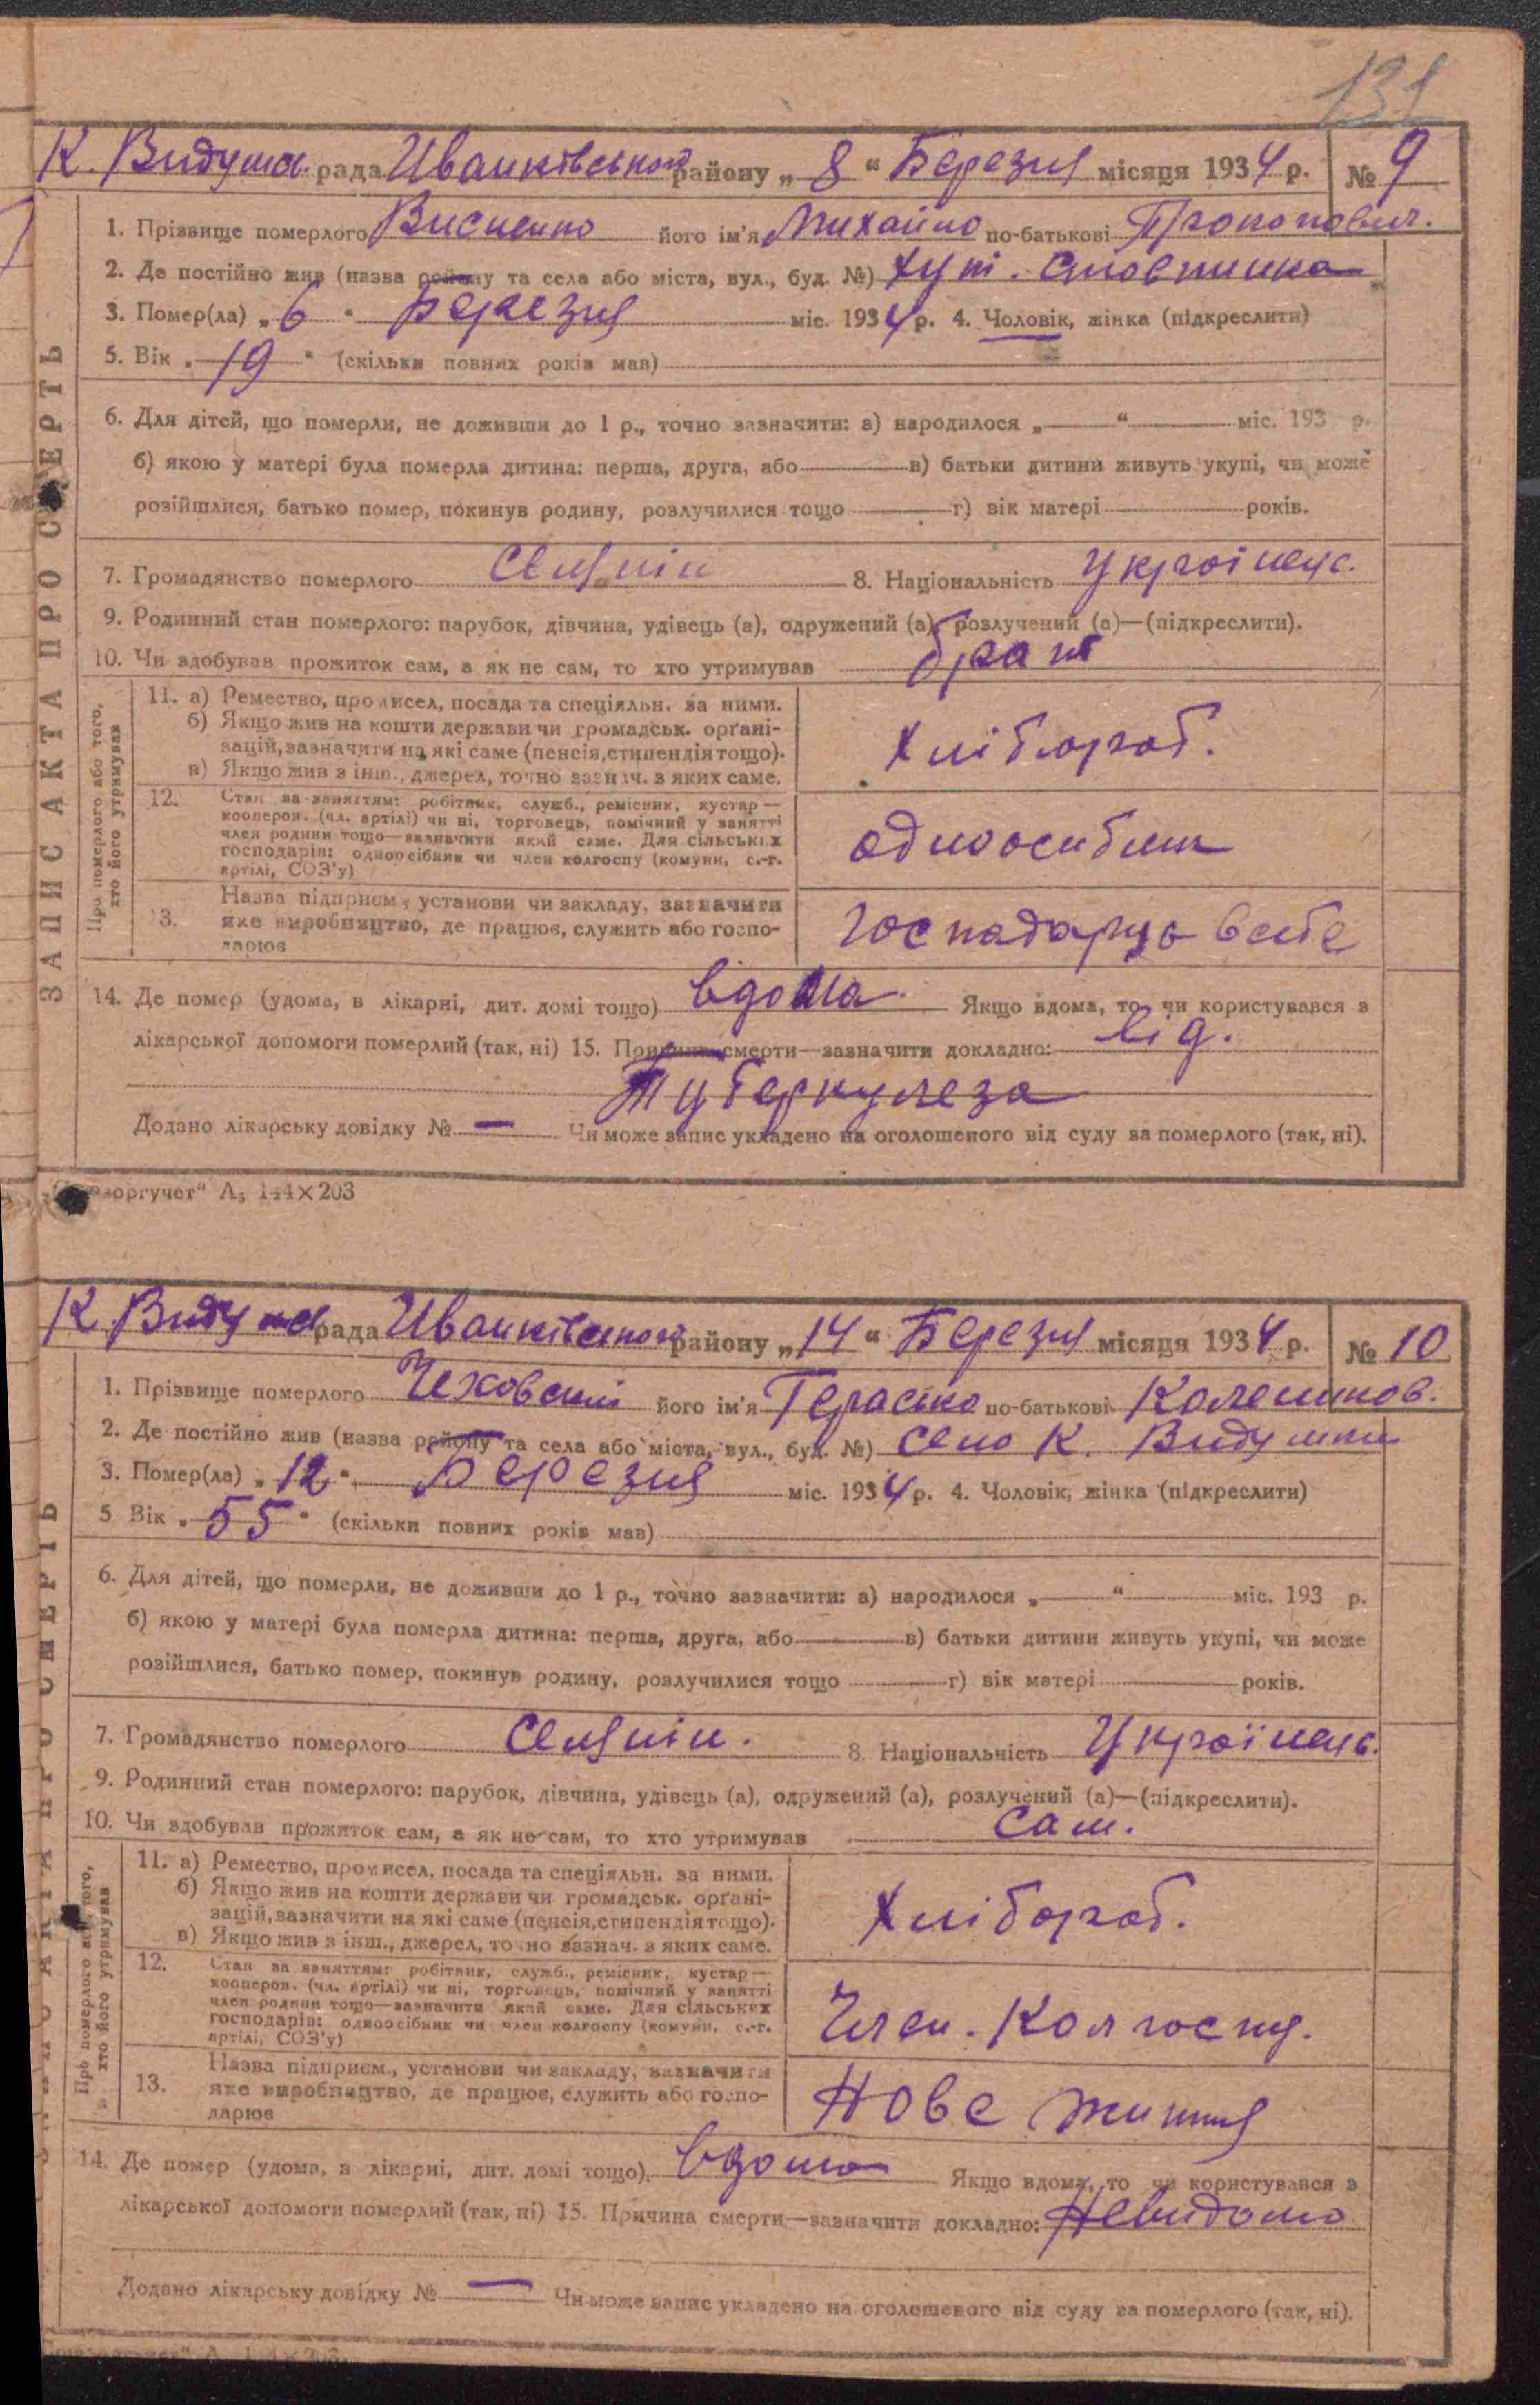 131
К. Видуша. рада Иванківського району „ 8 “ Березня місяця 1934 р. № 9
1. Прізвище померлого Висненко його ім'я Михайло по-батькові Прокопович.
2. Де постійно жив (назва району та села або міста, вул., буд. №) хут.
3. Помер(ла) „ 6 “ Березня міс. 1934 р. 4. Чоловік, жінка (підкреслити)
5. Вік „ 19 “ (скільки повних років мав)
6. Для дітей, що померли, не доживши до 1 р., точно зазначити: а) народилося „ “ міс. 193 р.
б) якою у матері була померла дитина: перша, друга, або в) батьки дитини живуть укупі, чи може
розійшлися, батько помер, покинув родину, розлучилися тощо г) вік матері років.
7. Громадянство померлого Селянін 8. Національність Українец.
9. Родинний стан померлого: парубок, дівчина, удівець (а), одружений (а), розлучений (а)—(підкреслити).
10. Чи здобував прожиток сам, а як не сам, то хто утримував брат
ЗАПИС АКТА ПРО СМЕРТЬ
Про померлого або того, хто його утримував
11. а) Ремество, промисел, посада та спеціяльн. за ними.
б) Якщо жив на кошти держави чи громадськ. органі-
зацій, зазначити на які саме (пенсія, стипендія тощо).
в) Якщо жив з інш., джерел, точно зазнач. з яких саме.
Хлібороб.
12. Стан за заняттям: робітник, служб., ремісник, кустар—
кооперов. (чл. артілі) чи ні, торговець, помічний у занятті
член родини тощо—зазначити який саме. Для сільських
господарів: одноосібник чи член колгоспу (комуни, с.-г.
артілі, СОЗ'у)
одноосибник
13. Назва підприєм., установи чи закладу, зазначити
яке виробництво, де працює, служить або госпо-
дарює
Господарць всебе
14. Де помер (удома, в лікарні, дит. домі тощо) вдома. Якщо вдома, то чи користувався з
лікарської допомоги померлий (так, ні) 15. Причина смерти—зазначити докладно: від.
Туберкулеза
Додано лікарську довідку № — Чи може запис укладено на оголошеного від суду за померлого (так, ні).
„Союзоргучет“ А₅ 144×203
К Видушка рада Иванківського району „ 14 “ Березня місяця 1934 р. № 10
1. Прізвище померлого Чеховский його ім'я Герасько по-батькові Калеников.
2. Де постійно жив (назва району та села або міста, вул., буд. №) село К. Видушки
3. Помер(ла) „ 12 “ Березня міс. 1934 р. 4. Чоловік, жінка (підкреслити)
5 Вік „ 55 “ (скільки повних років мав)
6. Для дітей, що померли, не доживши до 1 р., точно зазначити: а) народилося „ “ міс. 193 р.
б) якою у матері була померла дитина: перша, друга, або в) батьки дитини живуть укупі, чи може
розійшлися, батько помер, покинув родину, розлучилися тощо г) вік матері років.
7. Громадянство померлого Селянін. 8. Національність Українець.
9. Родинний стан померлого: парубок, дівчина, удівець (а), одружений (а), розлучений (а)—(підкреслити).
10. Чи здобував прожиток сам, а як не сам, то хто утримував сам.
ЗАПИС АКТА ПРО СМЕРТЬ
Про померлого або того, хто його утримував
11. а) Ремество, промисел, посада та спеціяльн. за ними.
б) Якщо жив на кошти держави чи громадськ. органі-
зацій, зазначити на які саме (пенсія, стипендія тощо).
в) Якщо жив з інш., джерел, точно зазнач. з яких саме.
Хлібороб.
12. Стан за заняттям: робітник, служб., ремісник, кустар—
кооперов. (чл. артілі) чи ні, торговець, помічний у занятті
член родини тощо—зазначити який саме. Для сільських
господарів: одноосібник чи член колгоспу (комуни, с.-г.
артілі, СОЗ'у)
Член. Колгоспу.
13. Назва підприєм., установи чи закладу, зазначити
яке виробництво, де працює, служить або госпо-
дарює
Нове життя
14. Де помер (удома, в лікарні, дит. домі тощо). вдома Якщо вдома, то чи користувався з
лікарської допомоги померлий (так, ні) 15. Причина смерти—зазначити докладно: Невидомо
Додано лікарську довідку № — Чи може запис укладено на оголошеного від суду за померлого (так, ні).